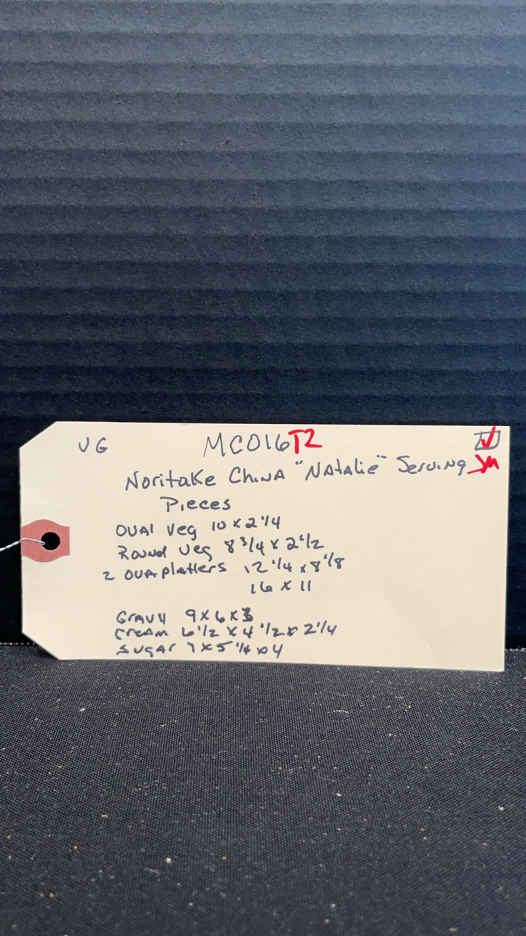 VG MC016T2
Noritake China "Natalie" Serving
Pieces
Oval Veg 10 x 2 1/4
Round Veg 8 3/4 x 2 1/2
2 Oval platters 12 1/4 x 8 1/8
16 x 11
Gravy 9 x 6 x 3
Cream 6 1/2 x 4 1/2 x 2 1/4
Sugar 7 x 5 1/4 x 4